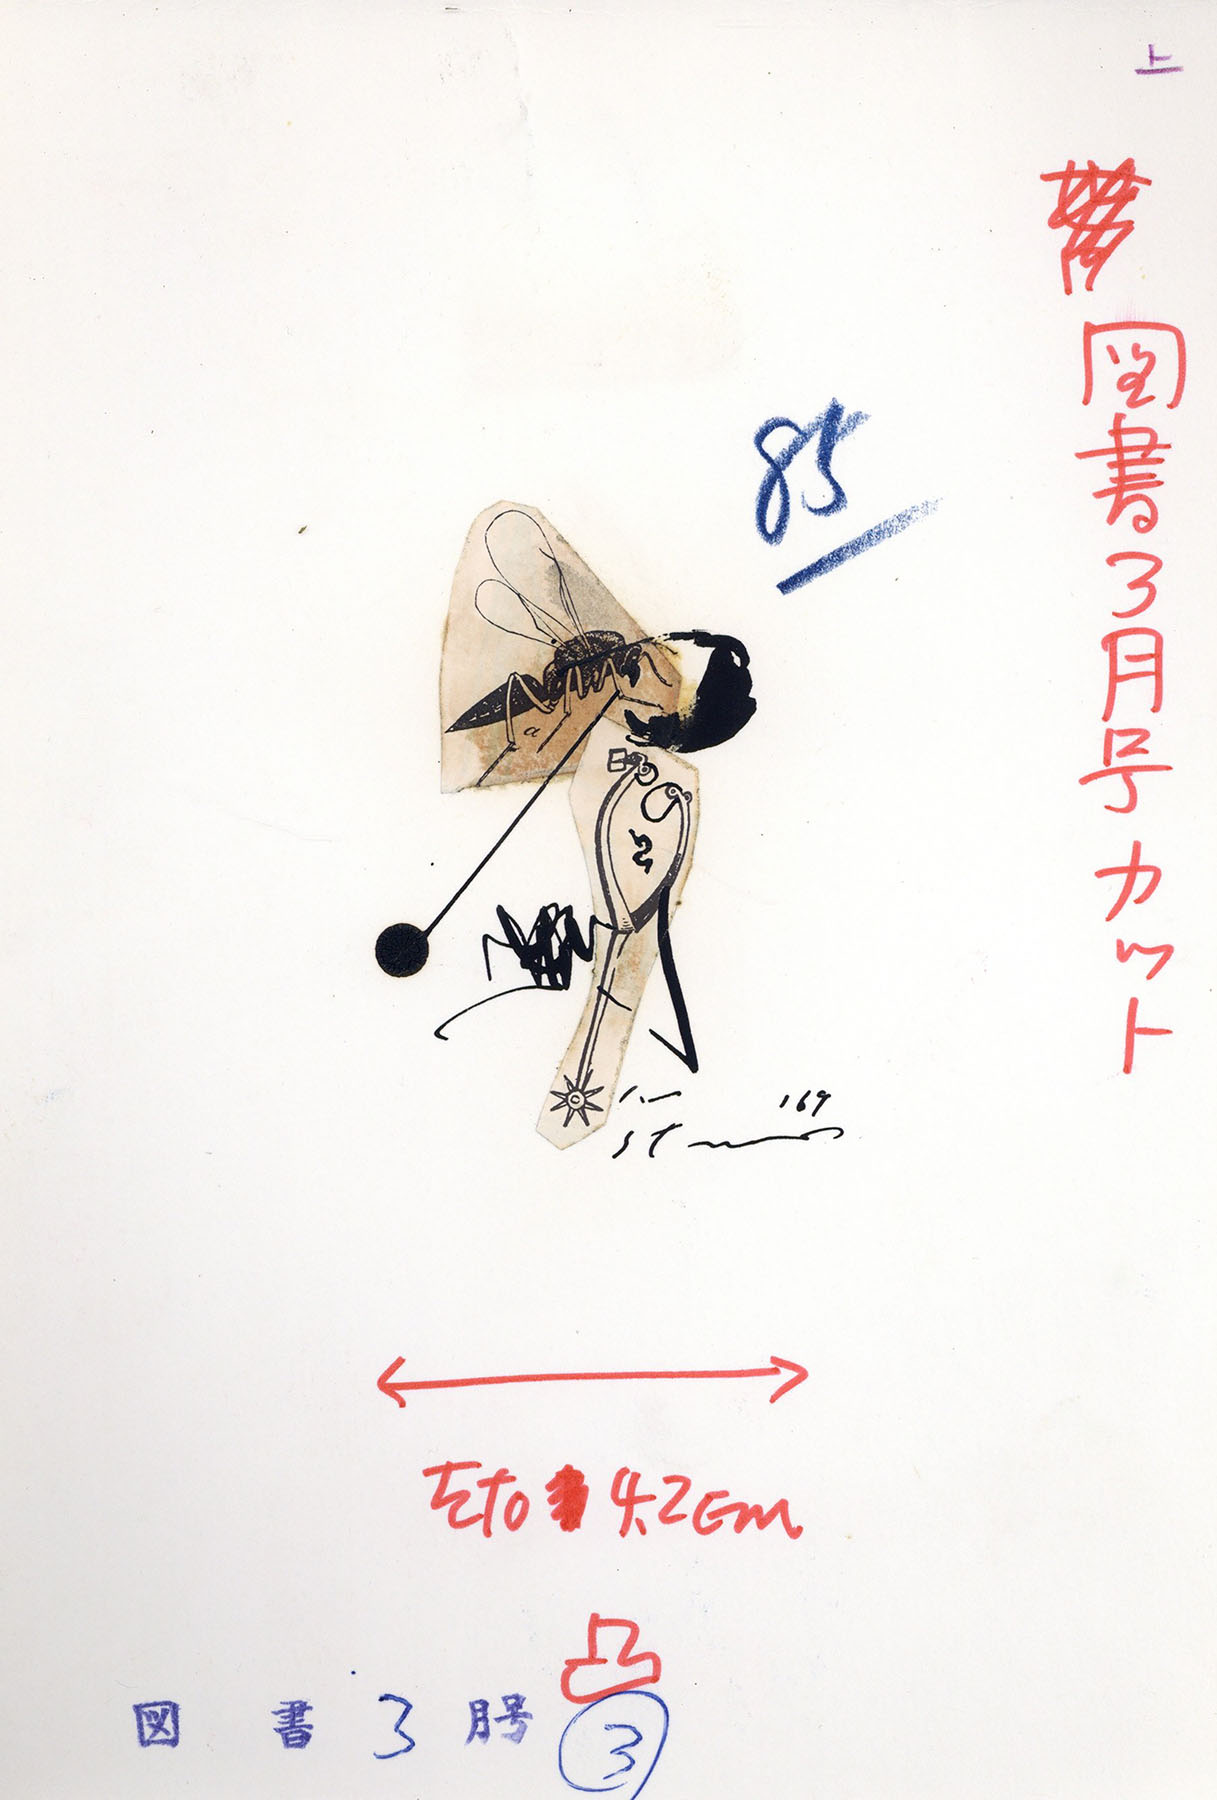 上
図書3月号カット
85
a
'69
左右 4.2cm
凸
図 書 3 月号 3